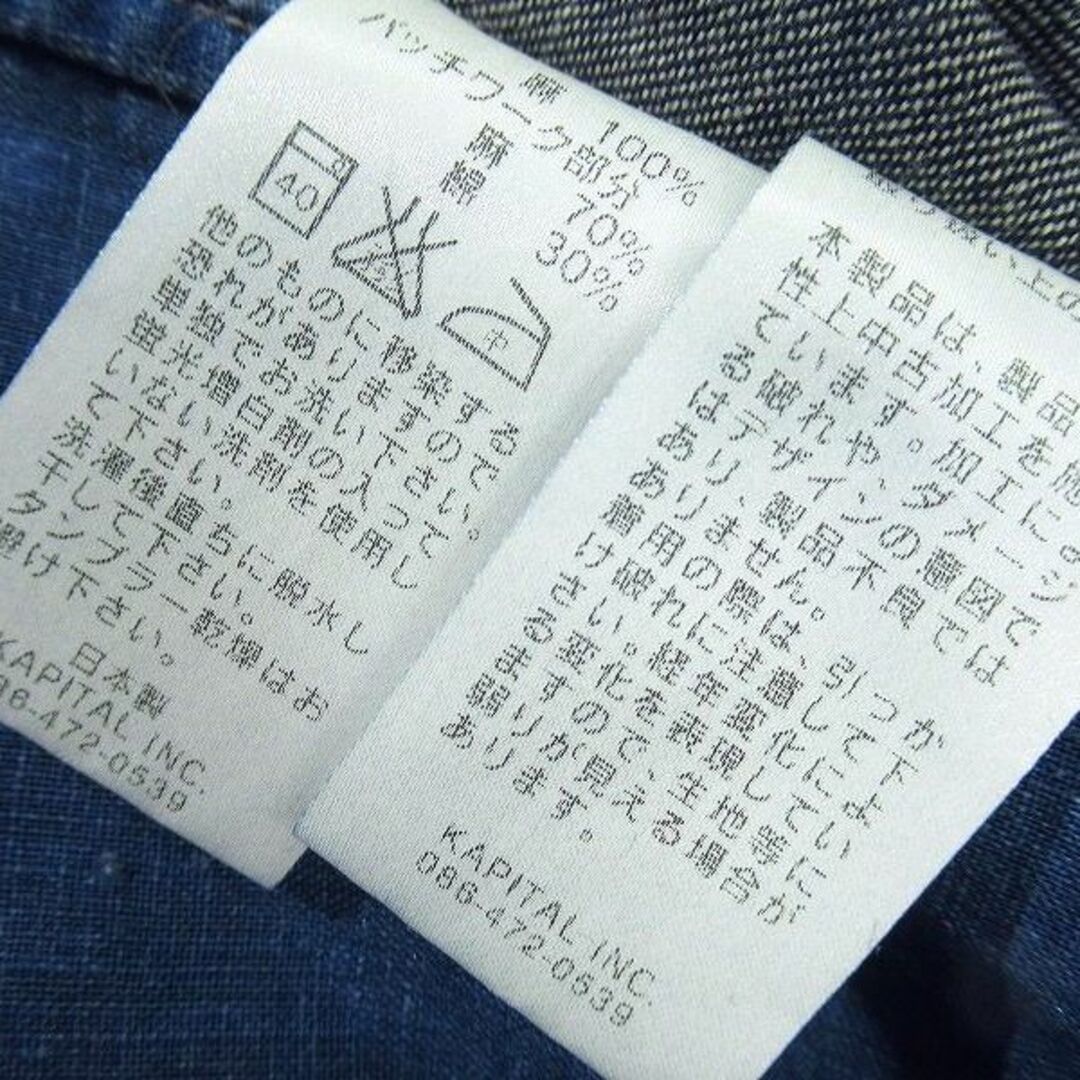 麻 100%
パッチワーク部分
麻 70%
綿 30%
40
中
他のものに移染する
恐れがありますので、
単独でお洗い下さい。
蛍光増白剤の入って
いない洗剤を使用し
て下さい。
洗濯後直ちに脱水し
干して下さい。
タンブラー乾燥はお
避け下さい。
日本製
KAPITAL INC.
086-472-0539
本製品は、製品
性上中古加工を施し
ています。加工によ
る破れや、ダメージ
はデザインの意図で
あり、製品不良では
ありません。
着用の際は、引っか
け破れに注意して下
さい。経年変化によ
る変化を表現してい
ますので、生地等に
弱りが見える場合が
あります。
KAPITAL INC.
086-472-0539